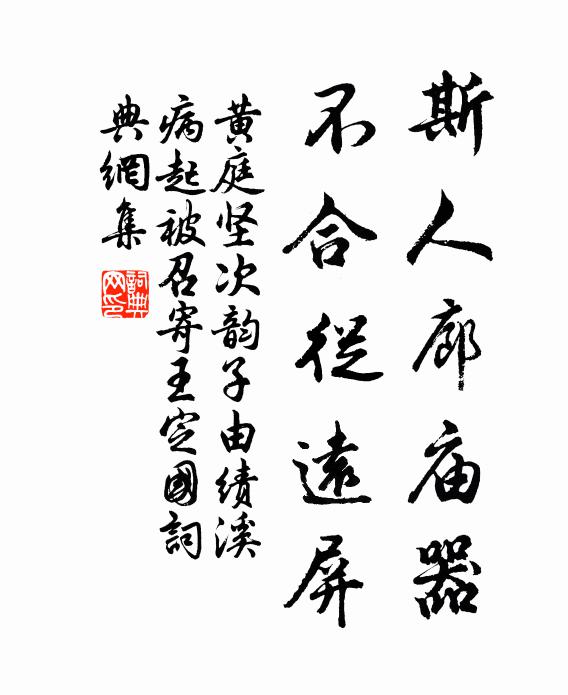 斯人廊庙器
不合從遠屏
黄庭坚次韵子由绩溪
病起被召寄王定國詞
典網集
詞典网印